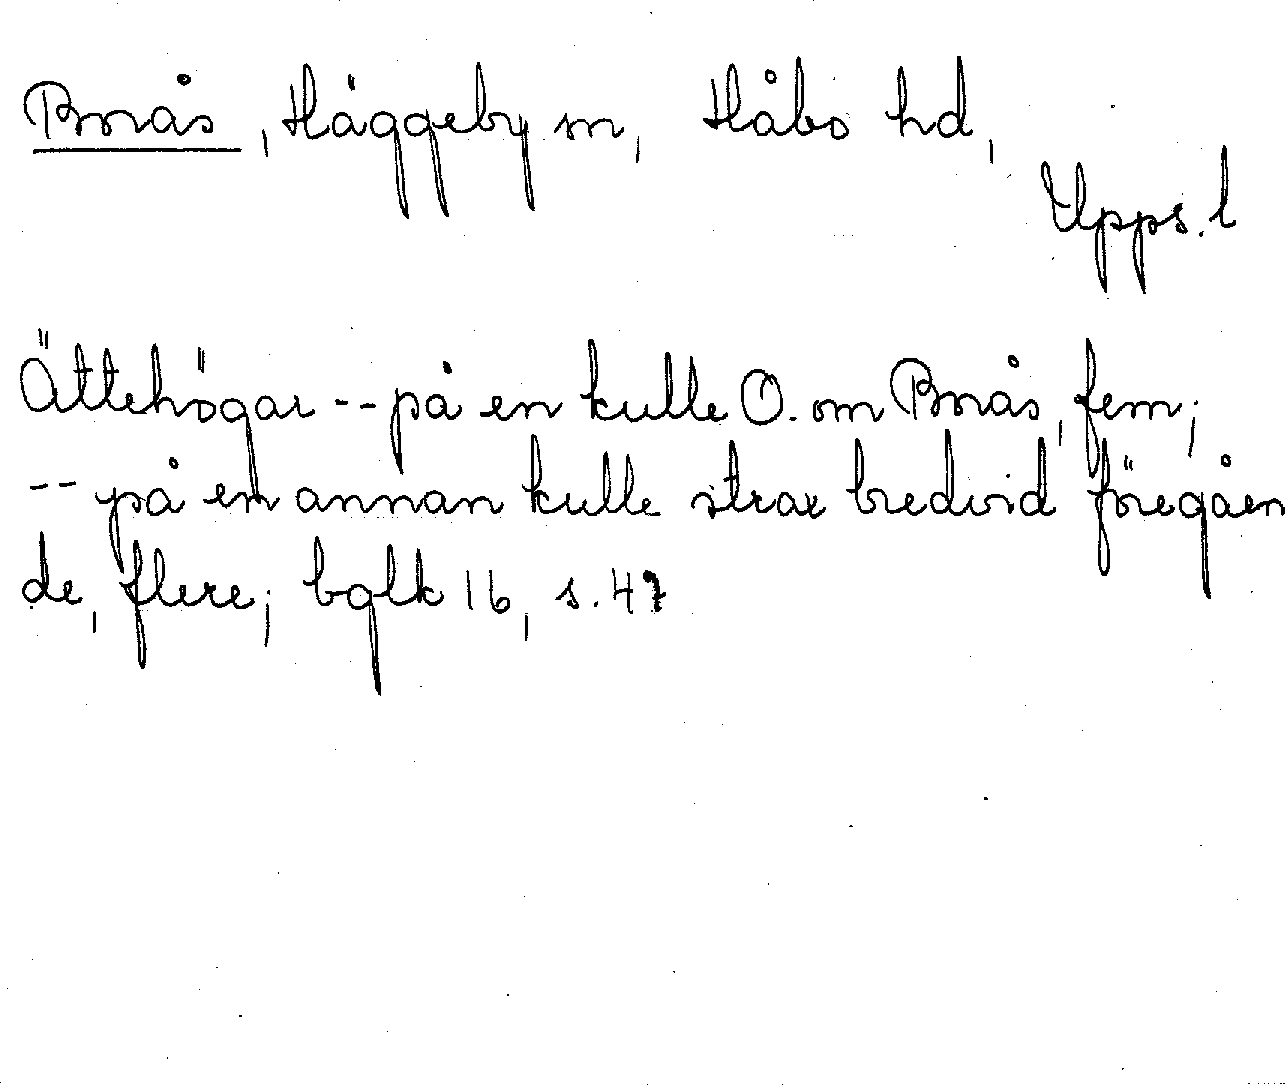 Borås, Häggeby sn, Håbo hd,
Upps. l
Ättehögar -- på en kulle O. om Borås, fem;
-- på en annan kulle strax bredvid föregåen
de, flere; bglk 16, s. 47